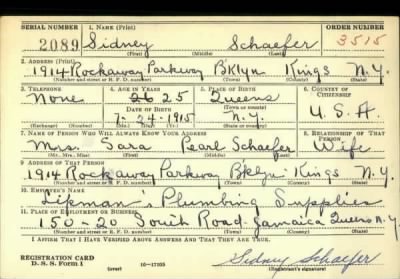 SERIAL NUMBER 1. NAME (Print) ORDER NUMBER
2089 Sidney Schaefer 3515
(First) (Middle) (Last)
2. ADDRESS (Print)
1914 Rockaway Parkway B'klyn Kings N.Y.
(Number and street or R. F. D. number) (Town) (County) (State)
3. TELEPHONE 4. AGE IN YEARS 5. PLACE OF BIRTH 6. COUNTRY OF CITIZENSHIP
None 26 25 Queens
DATE OF BIRTH (Town or county)
7-24-1915 N.Y. U.S.A.
(Exchange) (Number) (Mo.) (Day) (Yr.) (State or country)
7. NAME OF PERSON WHO WILL ALWAYS KNOW YOUR ADDRESS 8. RELATIONSHIP OF THAT PERSON
Mrs. Sara Pearl Schaefer Wife
(Mr., Mrs., Miss) (First) (Middle) (Last)
9. ADDRESS OF THAT PERSON
1914 Rockaway Parkway B'klyn Kings N.Y.
(Number and street or R. F. D. number) (Town) (County) (State)
10. EMPLOYER'S NAME
Lipman's Plumbing Supplies
11. PLACE OF EMPLOYMENT OR BUSINESS
150-20 South Road Jamaica Queens N.Y.
(Number and street or R. F. D. number) (Town) (County) (State)
I AFFIRM THAT I HAVE VERIFIED ABOVE ANSWERS AND THAT THEY ARE TRUE.
REGISTRATION CARD
D. S. S. FORM 1 Sidney Schaefer
(over) 16—17105 (Registrant's signature)